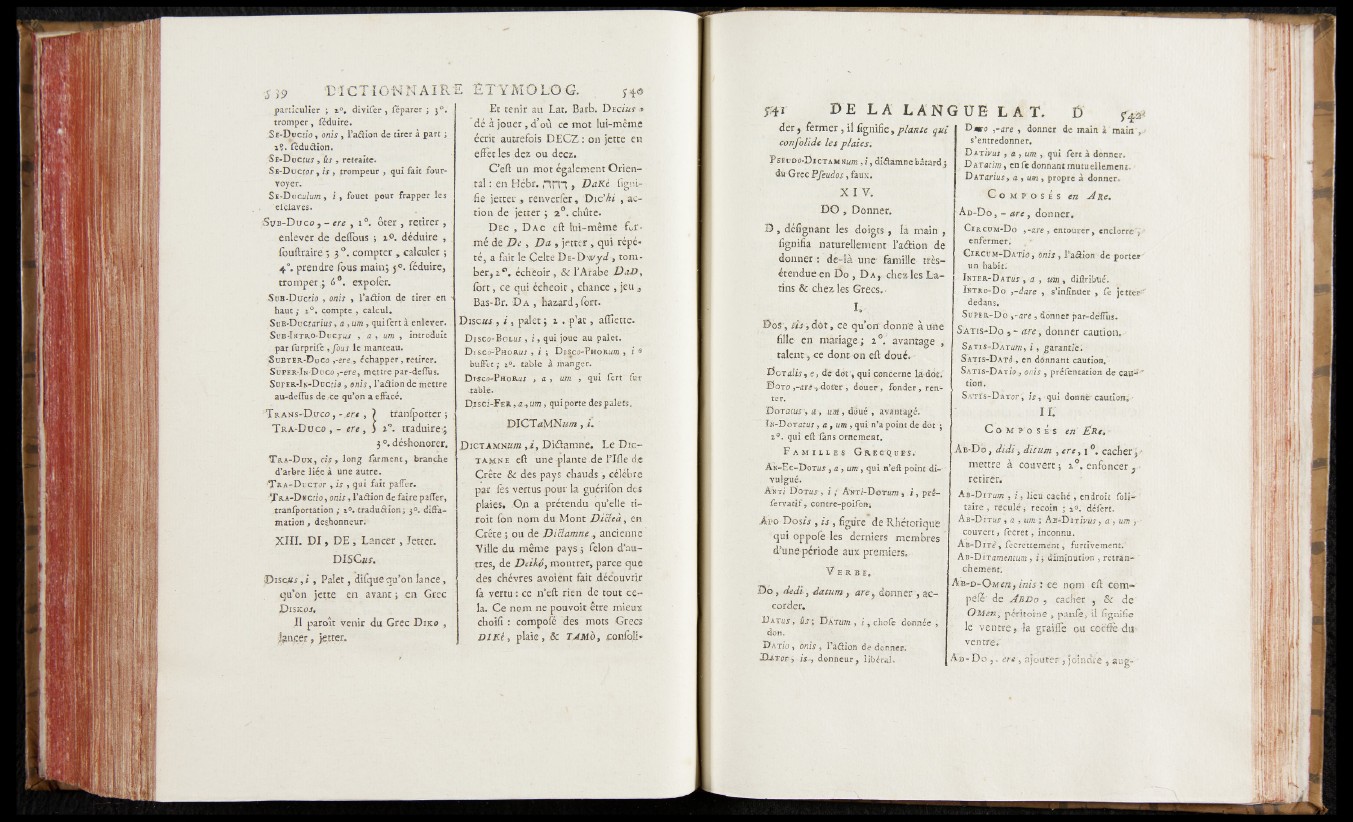 539 DICTIONNAIRE ÉTYMOLOG. 540
particulier ; 2°. diviſer, ſéparer ; 3°.
tromper, ſéduire.
SE-DUCtio, onis, l'action de tirer à part ;
2°. ſéduction.
SE-DUCtus, ûs, retraite.
SE-DUCtor, is, trompeur, qui fait four-
voyer.
SE-DUCulum, i, fouet pour frapper les
eſclaves.
SUB-DUCO, - ere, 1°. ôter, retirer,
enlever de deſſous ; 2°. déduire,
ſouſtraire ; 3°. compter, calculer ;
4°. prendre ſous main ; 5°. ſéduire,
tromper ; 6°. expoſer.
SUB-DUCtio, onis, l'action de tirer en
haut ; 2°. compte, calcul.
SUB-DUCtarius, a, um, qui ſert à enlever.
SUB-INTRO-DUCTUS, a, um, introduit
par ſurpriſe, ſous le manteau.
SUBTER-DUCO, -ere, échapper, retirer.
SUPER-IN-DUCO, -ere, mettre par-deſſus.
SUPER-IN-DUCtio, onis, l'action de mettre
au-deſſus de ce qu'on a effacé.
TRANS-DUCO, - ere, } tranſporter ;
TRA-DUCO, - ere, } 2°. traduire ;
3°. déshonorer.
TRA-DUX, cis, long ſarment, branche
d'arbre liée à une autre.
TRA-DUCTOR, is, qui fait paſſer.
TRA-DUCtio, onis, l'action de faire paſſer,
tranſportation ; 2°. traduction ; 3°. diffa-
mation, deshonneur.
XIII. DI, DE, Lancer, Jetter.
DISCus.
DISCus, i, Palet, diſque qu'on lance,
qu'on jette en avant ; en Grec
DISKOS.
Il paroît venir du Grec DIKO,
lancer, jetter.
Et tenir au Lat. Barb. DECIUS,
dé à jouer, d'où ce mot lui-même
écrit autrefois DECZ : on jette en
effet les dez ou decz.
C'eſt un mot également Orien-
tal : en Hébr. דחה, DaKé ſigni-
fie jetter, renverſer, DIC'hi, ac-
tion de jetter ; 2°. chûte.
DEC, DAC eſt lui-même for-
mé de De, Da, jetter, qui répé-
té, a fait le Celte DE-Dwyd, tom-
ber, 2°. échéoir, & l'Arabe DaD,
ſort, ce qui échéoit, chance, jeu,
Bas-Br. DA, hazard, ſort.
DISCUS, i, palet ; 2. plat, aſſiette.
DISCO-BOLUS, i, qui joue au palet.
DISCO-PHORUS, i ; DISCO-PHORUM, i,
buffet ; 2°. table à manger.
DISCO-PHORUS, a, um, qui ſert ſur
table.
DISCI-FER, a, um, qui porte des palets.
DICTAMNum, i.
DICTAMNum, i, Dictamne. Le DIC-
TAMNE eſt une plante de l'Iſle de
Crète & des pays chauds, célèbre
par ſes vertus pour la guériſon des
plaies. On a prétendu qu'elle ti-
roit ſon nom du Mont Dictéa, en
Crète ; ou de Dictamne, ancienne
Ville du même pays ; ſelon d'au-
tres, de Deikó, montrer, parce que
des chévres avoient fait découvrir
ſa vertu : ce n'eſt rien de tout ce-
la. Ce nom ne pouvoit être mieux
choiſi : compoſé des mots Grecs
DIKé, plaie, & TAMÒ, conſoli-
541 DE LA LANGUE LAT. D 542
der, fermer, il ſignifie, plante qui
conſolide les plaies.
PSEUDO-DICTAMNum, i, dictamne bâtard ;
du Grec Pſeudos, faux.
XIV.
DO, Donner.
D, déſignant les doigts, la main,
ſignifia naturellement l'action de
donner : de-là une famille très-
étendue en DO, DA, chez les La-
tins & chez les Grecs.
I.
DOS, tis, dot, ce qu'on donne à une
fille en mariage ; 2°. avantage,
talent, ce dont on eſt doué.
DOTALIS, e, de dot, qui concerne la dot.
DOTO, -are, doter, douer, fonder, ren-
ter.
DOTATUS, a, um, doué, avantagé.
IN-DOTATUS, a, um, qui n'a point de dot ;
2°. qui eſt ſans ornement.
FAMILLES GRECQUES.
AN-EC-DOTUS, a, um, qui n'eſt point di-
vulgué.
ANTI DOTUS, i ; ANTI-DOTUM, i, pré-
ſervatif, contre-poiſon.
APO DOSIS, is, figure de Rhétorique
qui oppoſe les derniers membres
d'une période aux premiers.
VERBE.
DO, dedi, datum, are, donner, ac-
corder.
DATUS, ûs ; DATUM, i, choſe donnée,
don.
DATIO, onis, l'action de donner.
DATOR, is, donneur, libéral.
,-are, donner de main à main,
s'entredonner.
DATIVUS, a, um, qui ſert à donner.
DATATIM, en ſe donnant mutuellement.
DATARIUS, a, um, propre à donner.
COMPOSÉS en ARe.
AD-DO, - are, donner.
CIRCUM-DO, -are, entourer, enclorre,
enfermer.
CIRCUM-DATIO, onis, l'action de porter
un habit.
INTER-DATUS, a, um, diſtribué.
INTRO-DO, -dare, s'inſinuer, ſe jetter
dedans.
SUPER-DO, -are, donner par-deſſus.
SATIS-DO, - are, donner caution.
SATIS-DATUM, i, garantie.
SATIS-DATÒ, en donnant caution.
SATIS-DATIO, onis, préſentation de cau-
tion.
SATIS-DATOR, is, qui donne caution.
II.
COMPOSÉS en ERe.
AB-DO, didi, ditum, ere, 1°. cacher ;
mettre à couvert ; 2°. enfoncer,
retirer.
AB-DITUM, i, lieu caché, endroit ſoli-
taire, reculé, recoin ; 2°. déſert.
AB-DITUS, a, um ; AB-DITIVUS, a, um,
couvert, ſecret, inconnu.
AB-DITÈ, ſecrettement, furtivement.
AB-DITAMENTUM, i, diminution, retran-
chement.
AB-D-OMEN, inis : ce nom eſt com-
poſé de ABDO, cacher, & de
OMEN, péritoine, panſe, il ſignifie
le ventre, la graiſſe ou coëffe du
ventre.
AD-DO, - ere, ajouter, joindre, aug-